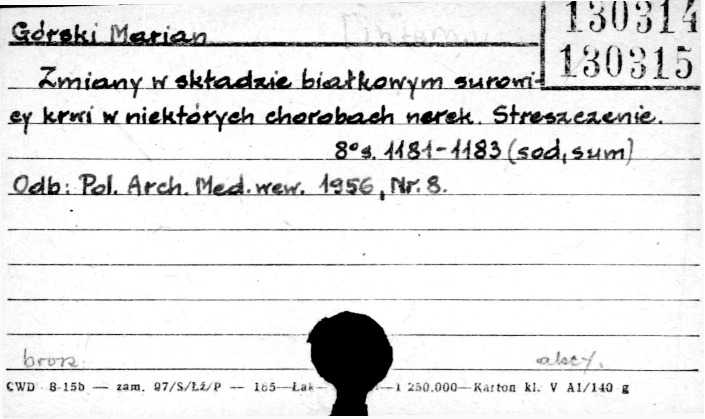 130314
130315
Górski Marian
Zmiany w składzie białkowym surowi-
cy krwi w niektórych chorobach nerek. Streszczenie.
8° s. 1181-1183 (sod, sum)
Odb: Pol. Arch. Med. wew. 1956, Nr. 8.
brosz.
CWD 8-15b — zam. 97/S/Łż/P — 165—Łak 1 250.000—Karton kl. V A1/140 g